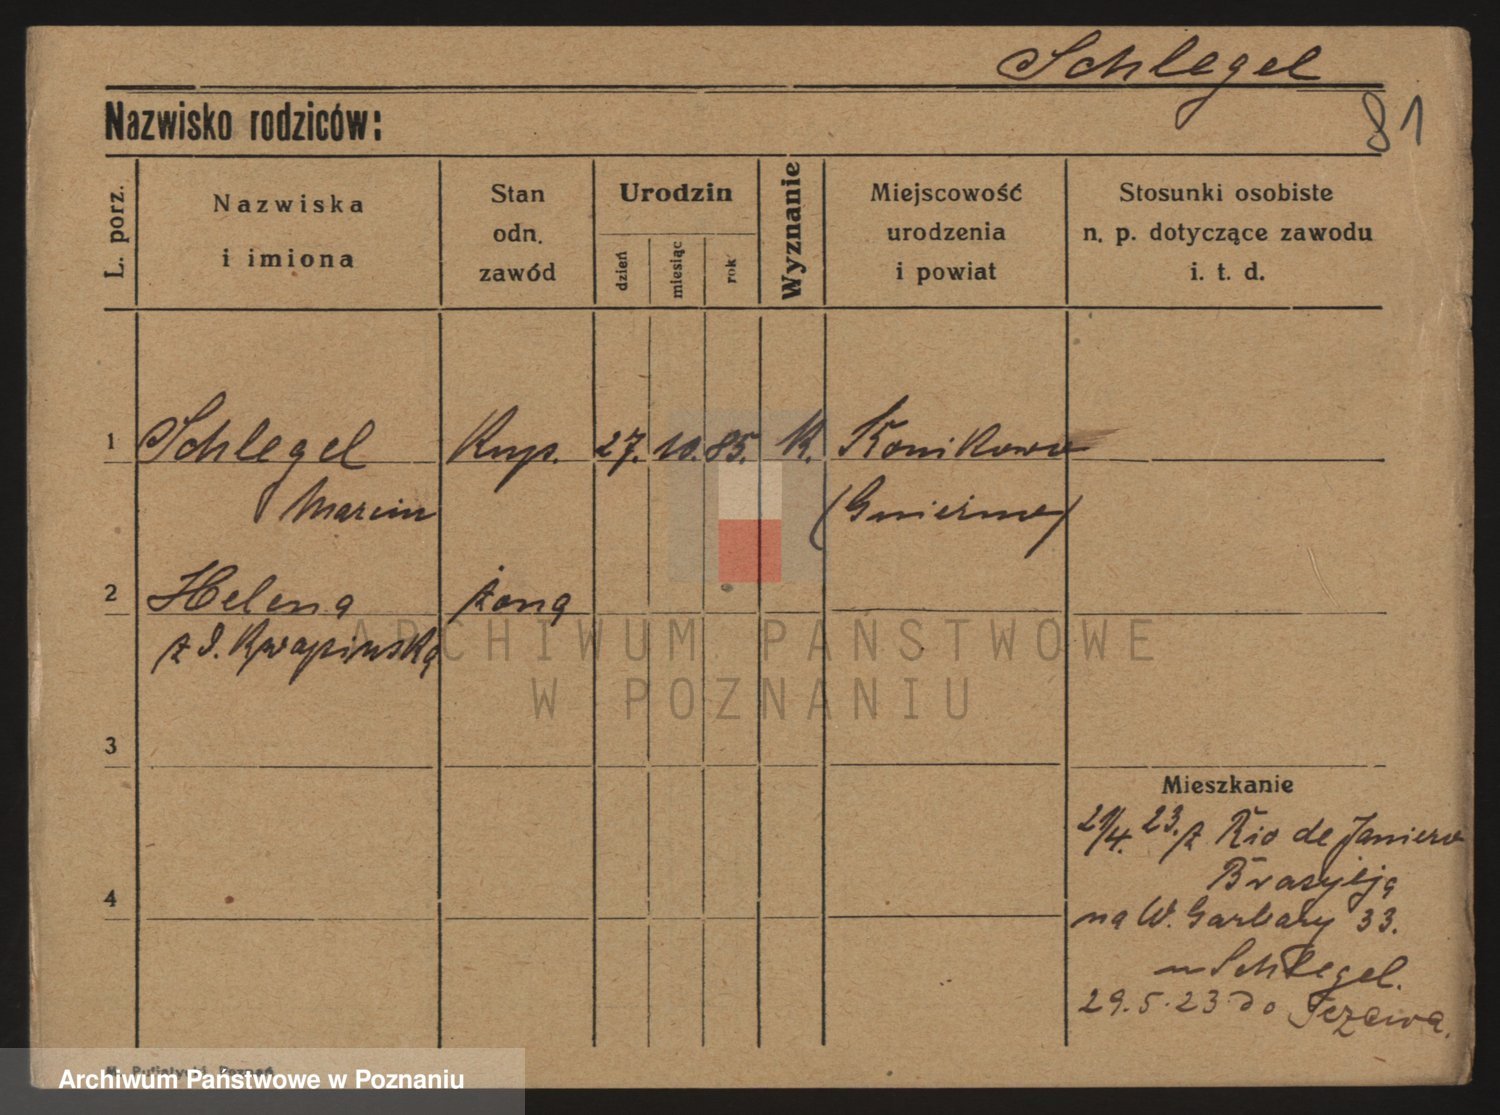 Schlegel
81
Nazwisko rodziców:
L. porz.
Nazwiska
i imiona
Stan
odn.
zawód
Urodzin
dzień
miesiąc
rok
Wyznanie
Miejscowość
urodzenia
i powiat
Stosunki osobiste
n. p. dotyczące zawodu
i. t. d.
1 Schlegel Kup. 27. 10. 85. K. Konikowo
Marcin (Gniezno)
2 Helena żona
z d. Kwapińska
3
4
Mieszkanie
21/4. 23. z Rio de Janiero
Brasylja
na W. Garbary 33.
u Schlegel.
29.5.23 do
ARCHIWUM PAŃSTWOWE
W POZNANIU
Archiwum Państwowe w Poznaniu